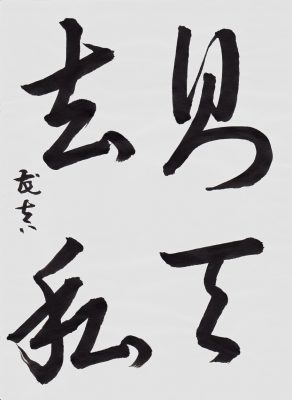 則天
去私